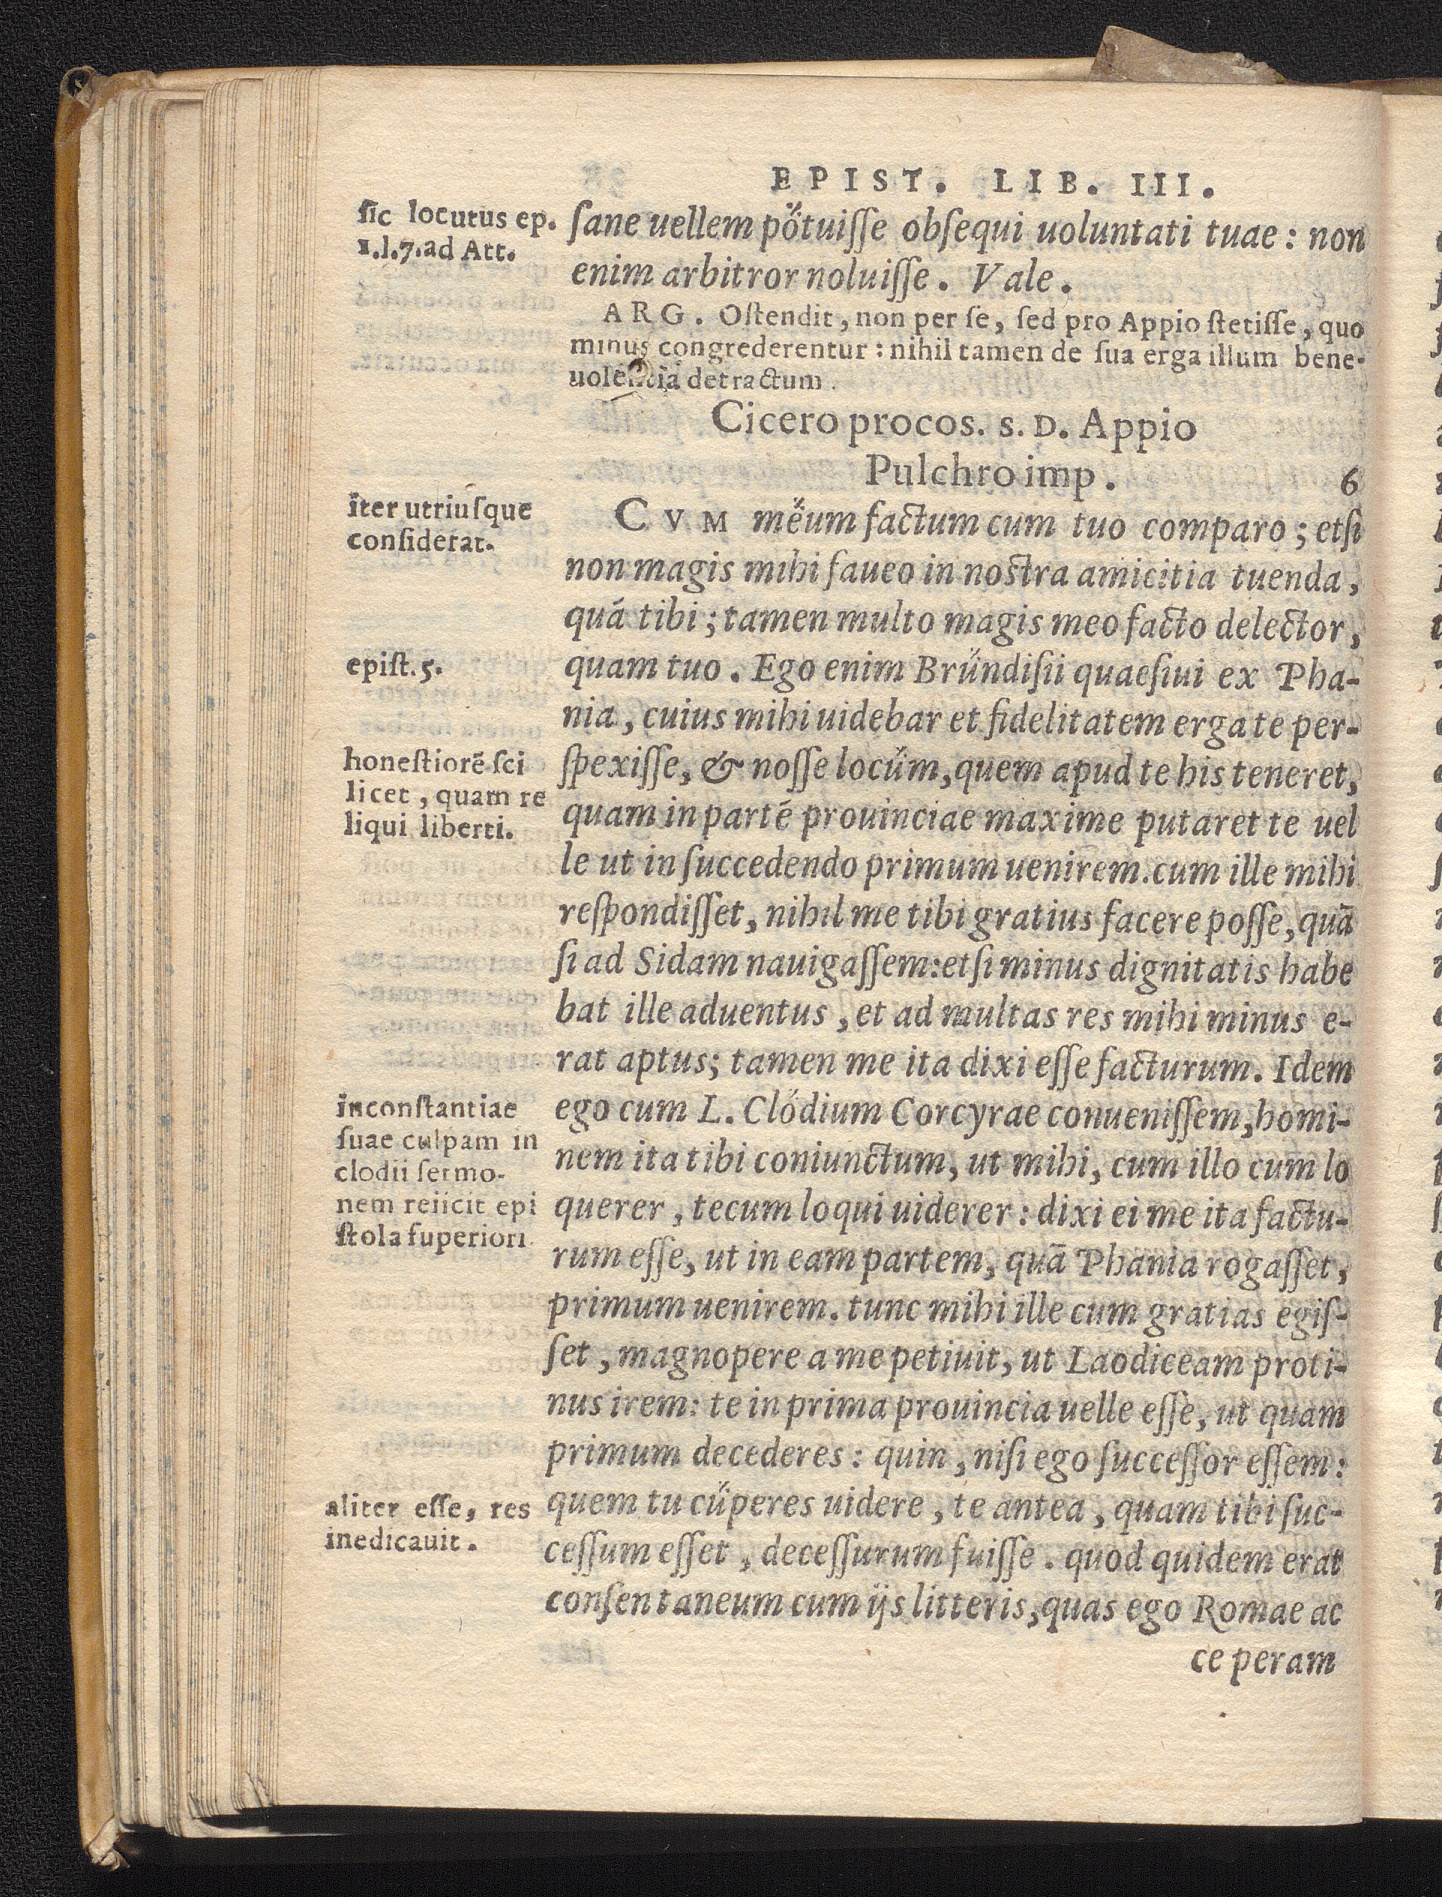 EPIST. LIB. III.
sic locutus ep.
1.l.7.ad Att.
sane uellem po̎tuisse obsequi uoluntati tuae : non
enim arbitror noluisse. Vale.
ARG. Ostendit, non per se, sed pro Appio stetisse, quo
minus congrederentur : nihil tamen de sua erga illum bene-
uolentia detractum.
Cicero procos. s. D. Appio
Pulchro imp. 6
iter utriusque
considerat.
CVM me̎um factum cum tuo comparo ; etsi
non magis mihi faueo in nostra amicitia tuenda,
quā tibi ; tamen multo magis meo facto delector,
epist. 5.
quam tuo. Ego enim Bru̎ndisii quaesiui ex Pha-
nia, cuius mihi uidebar et fidelitatem erga te per-
honestiorē sci
licet, quam re
liqui liberti.
spexisse, & nosse locu̎m, quem apud te his teneret,
quam in partē prouinciae maxime putaret te uel
le ut in succedendo primum uenirem. cum ille mihi
respondisset, nihil me tibi gratius facere posse, quā
si ad Sidam nauigassem: etsi minus dignitatis habe
bat ille aduentus, et ad multas res mihi minus e-
rat aptus; tamen me ita dixi esse facturum. Idem
inconstantiae
suae culpam in
clodii sermo-
nem reiicit epi
stola superiori
ego cum L. Clo̎dium Corcyrae conuenissem, homi-
nem ita tibi coniunctum, ut mihi, cum illo cum lo
querer, tecum loqui uiderer : dixi ei me ita factu-
rum esse, ut in eam partem, quā Phania rogasset,
primum uenirem. tunc mihi ille cum gratias egis-
set, magnopere a me petiuit, ut Laodiceam proti-
nus irem: te in prima prouincia uelle esse, ut quam
primum decederes : quin, nisi ego successor essem:
aliter esse, res
inedicauit.
quem tu cu̎peres uidere, te antea, quam tibi suc-
cessum esset, decessurum fuisse. quod quidem erat
consentaneum cum ijs litteris, quas ego Romae ac
ce peram